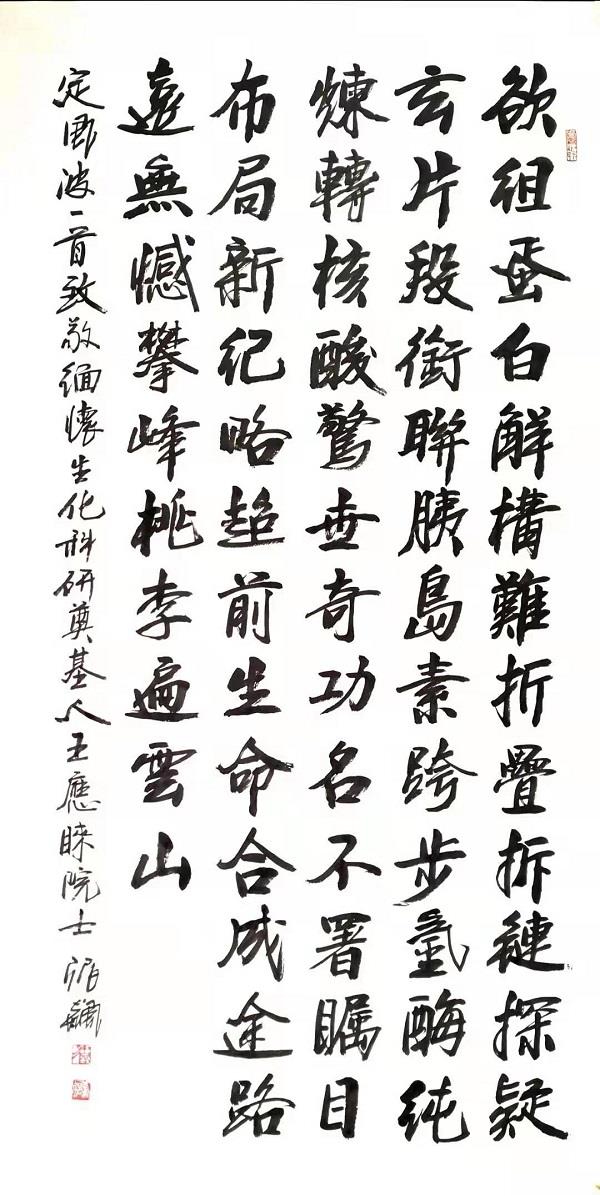 欲组蛋白解構難折疊拆鏈探疑
玄片段銜聯胰島素跨步氫酶純
煉轉核酸驚世奇功名不署矚目
布局新纪略超前生命合成途路
遠無憾攀峰桃李遍雲山
定風波一首致敬缅懷生化科研奠基人王應睞院士